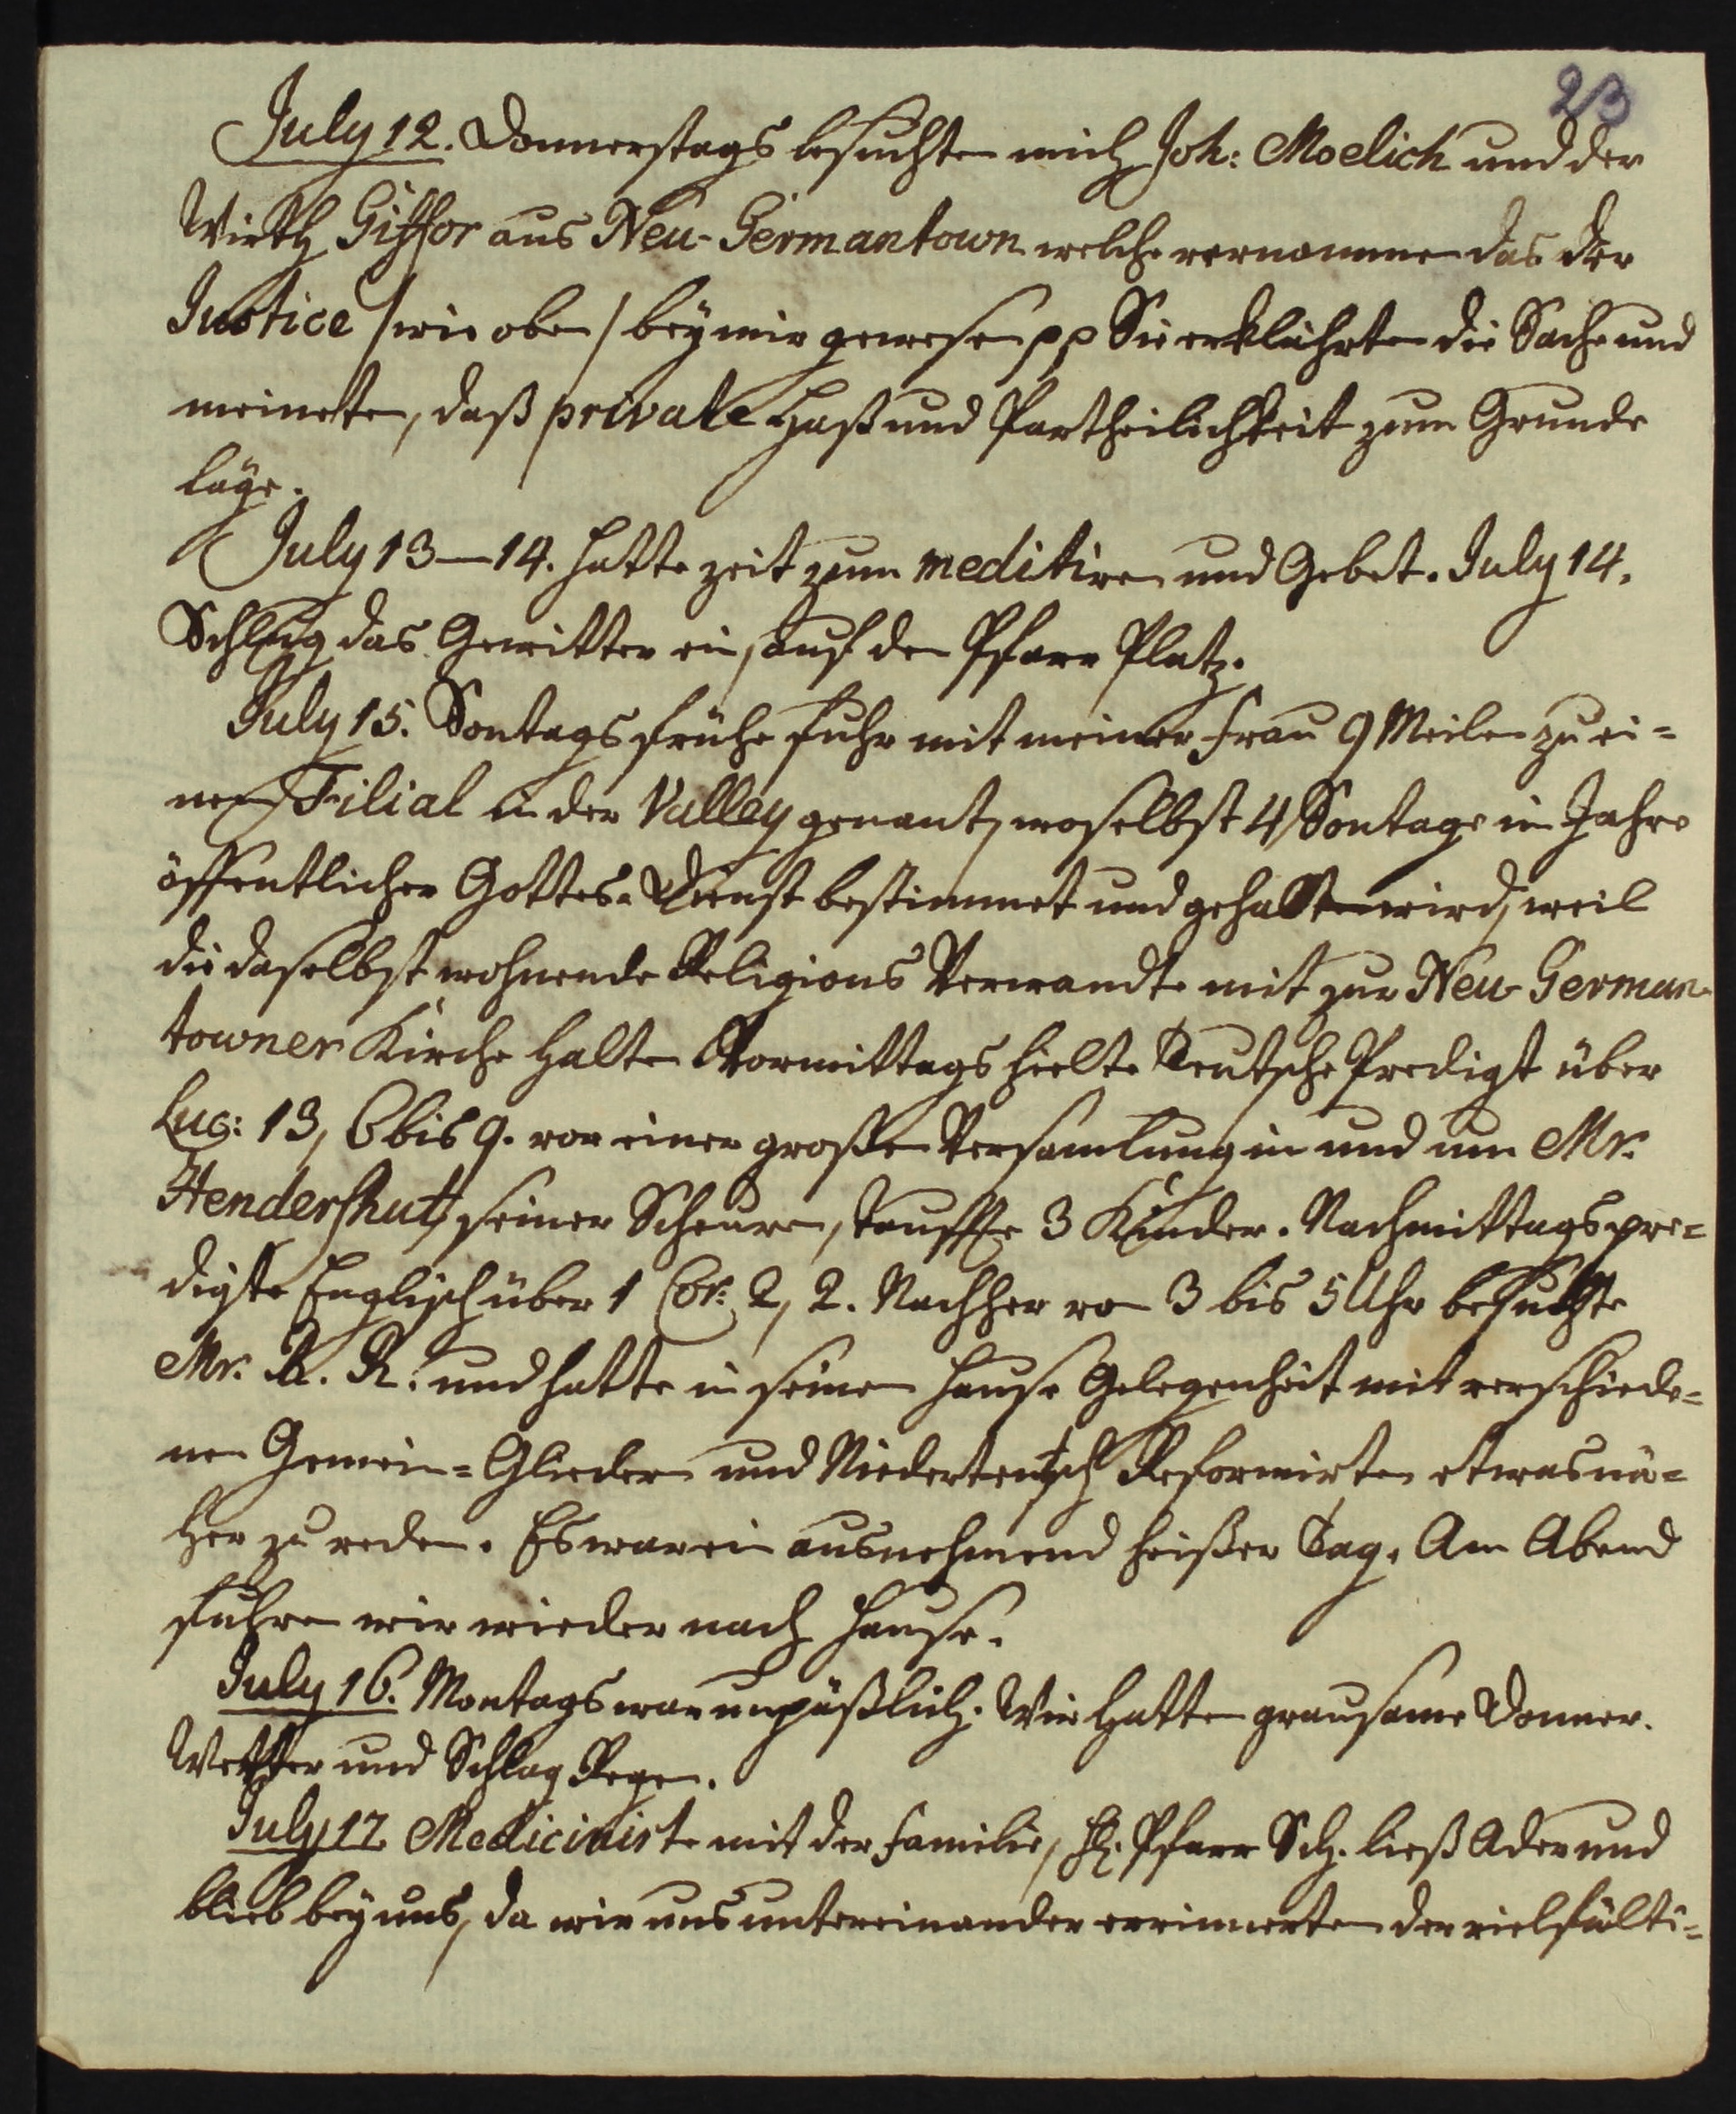 23
July 12. Donnerstags besuchten mich Joh: Moelich und der
Wirth Giffor aus Neu-Germantown welche vernommen das der
Justice /wie oben/ bey mir gewesen pp Sie erklährten die Sache und
meineten, daß private Haß und Partheilichkeit zum Grunde
läge.
July 13—14. hatte zeit zum meditiren und Gebet. July 14.
Schlug das Gewitter ein, auf den Pfarr Platz.
July 15. Sontags frühe fuhr mit meiner Frau 9 Meilen zu ei=
nem Filial in der Valley genant, woselbst 4 Sontage im Jahre
öffentlicher Gottes-Dienst bestimmet und gehalten wird, weil
die daselbst wohnende Religions Verwandte mit zur Neu German-
towner Kirche halten. Vormittags hielte Teutsche Predigt über
Luc: 13, 6 bis 9. vor einer großen Versamlung in und um Mr.
Hendershutt seiner Scheuren, tauffte 3 Kinder. Nachmittags pre=
digte Englisch über 1 Cor: 2, 2. Nachher von 3 bis 5 Uhr besuchte
Mr. R. R. und hatte in seinem Hause Gelegenheit mit verschiede=
nen Gemein=Gliedern und Niederteutsch Reformirten etwas nä=
her zu reden. Es war ein ausnehmend heißer Tag. Am Abend
fuhren wir wieder nach Hause.
July 16. Montags war unpäßlich. Wir hatten grausame Donner-
Wetter und Schlag Regen.
July 17. Medicinirte mit der Familie, H. Pfarr Sch. ließ Ader und
blieb bey uns, da wir uns untereinander erinnerten der vielfälti=